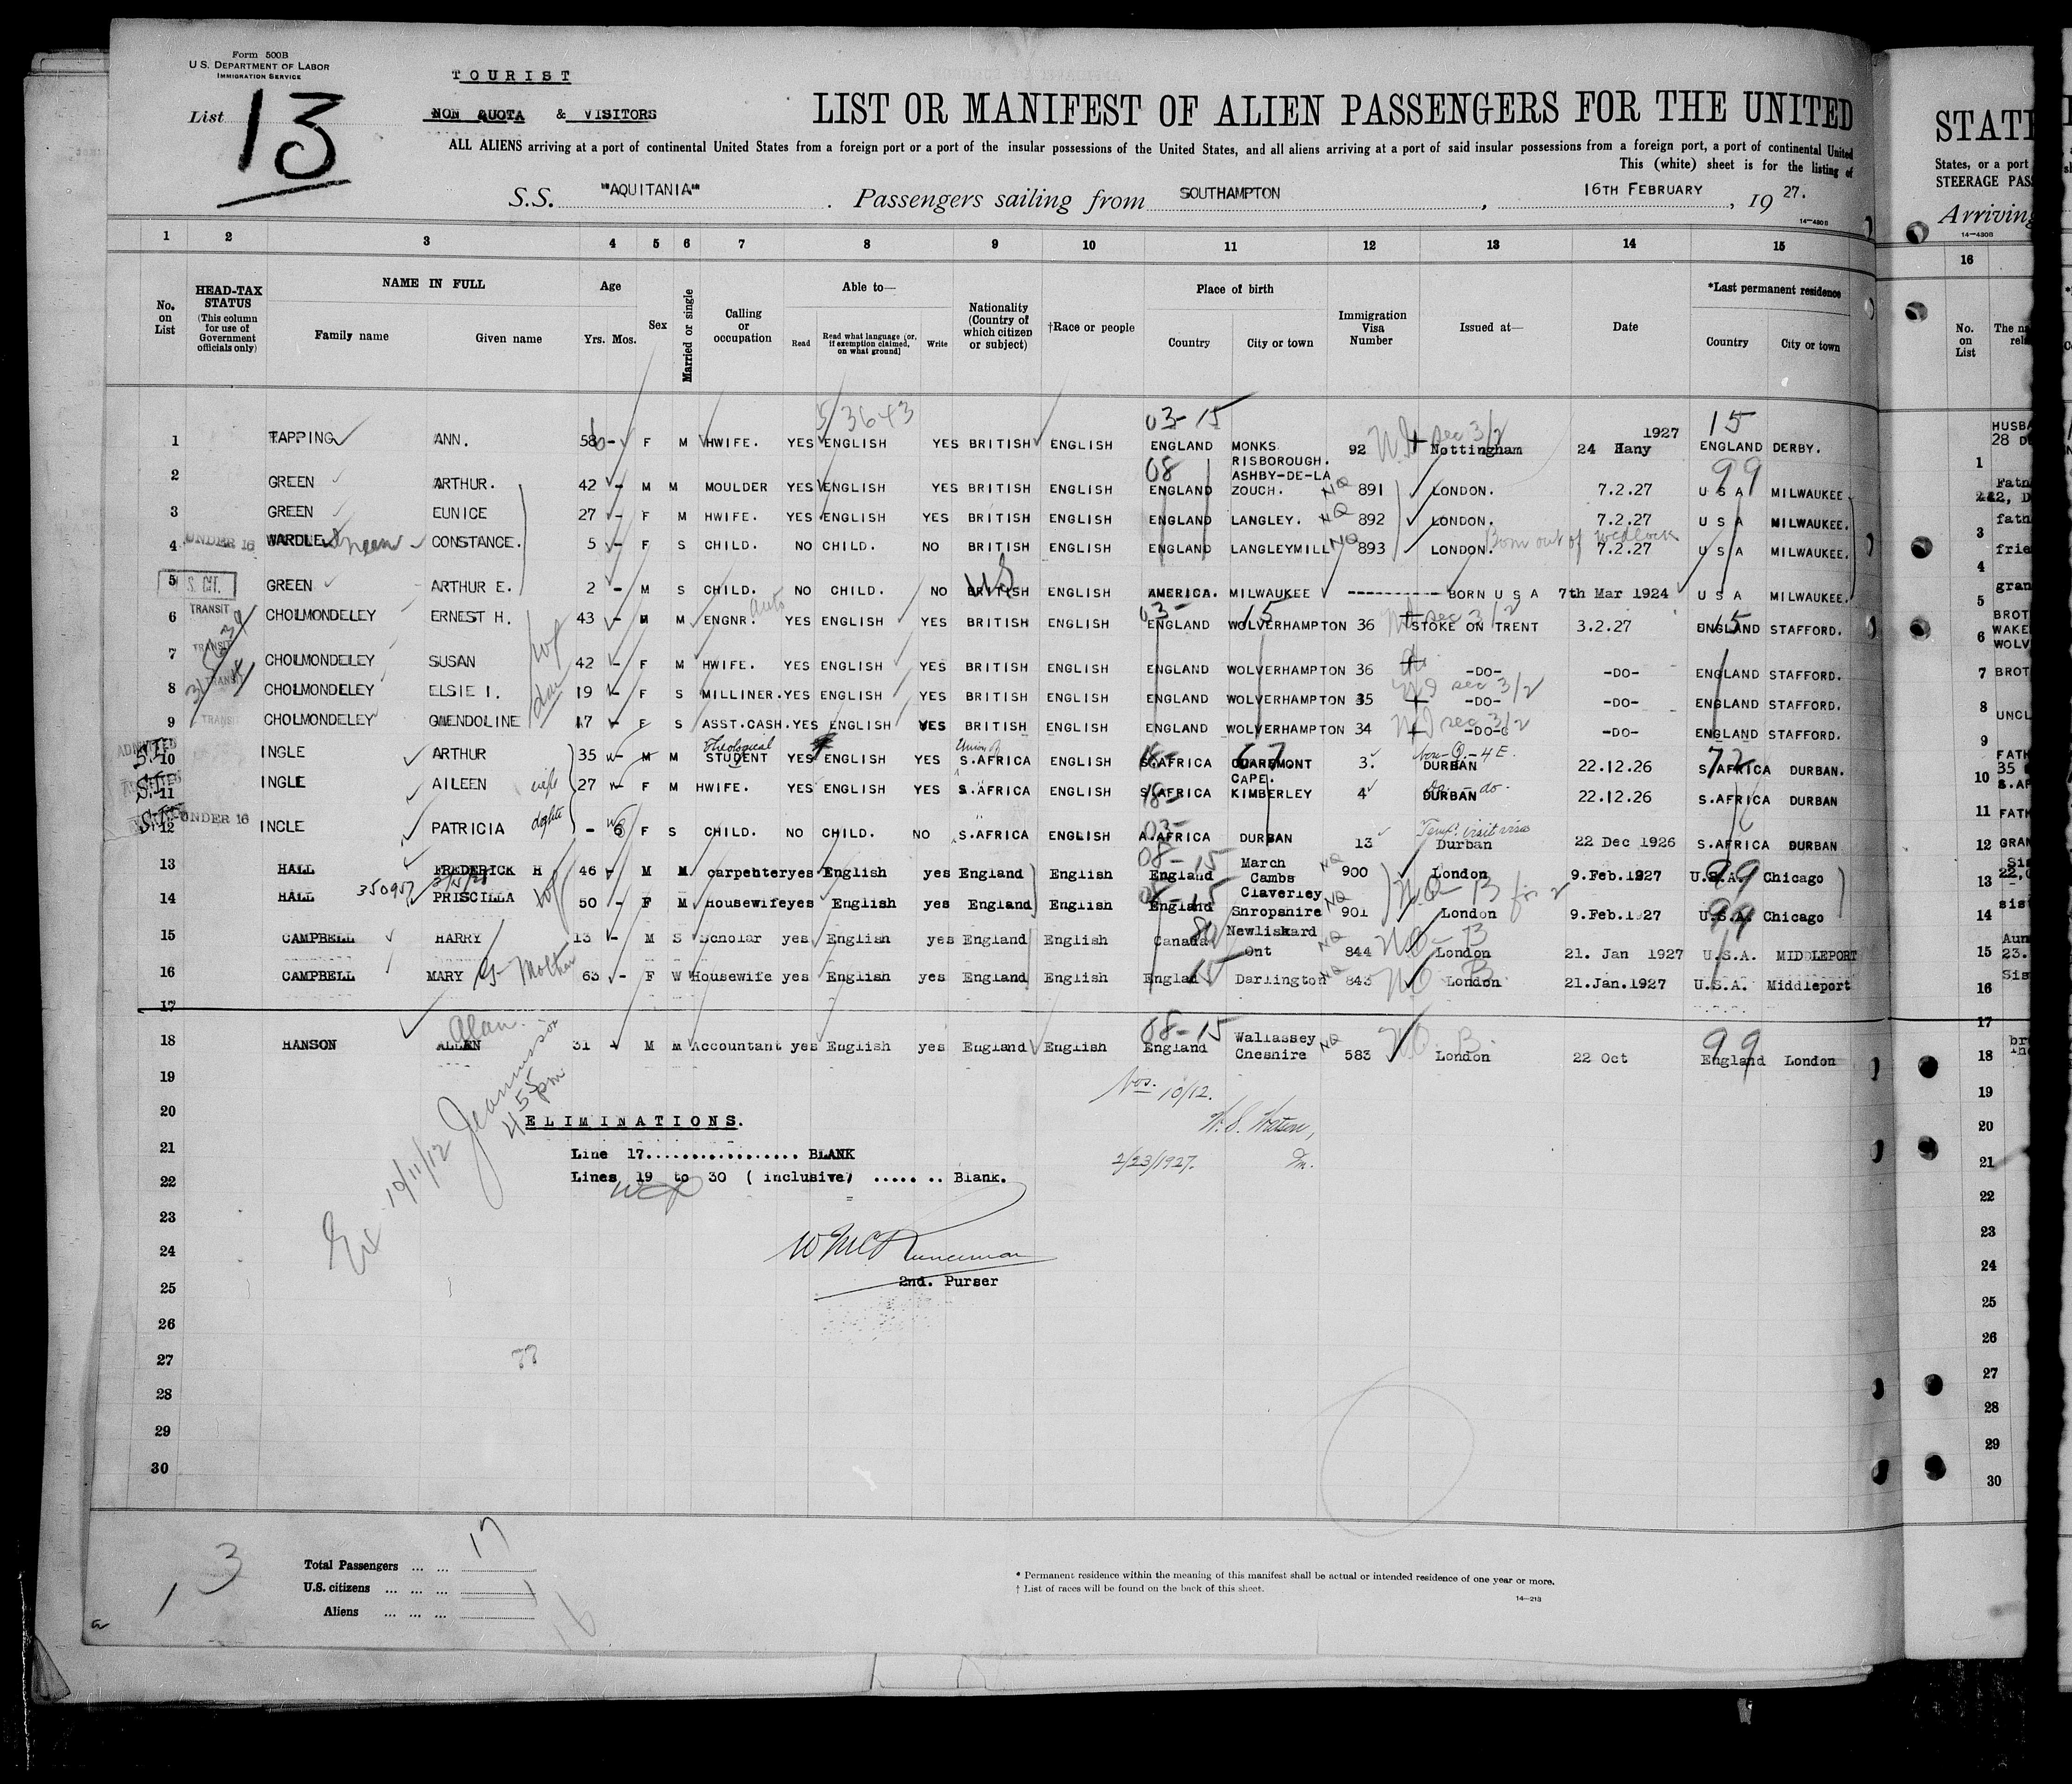 Form 500B
U.S. DEPARTMENT OF LABOR
IMMIGRATION SERVICE
List 13
TOURIST
NON QUOTA & VISITORS
LIST OR MANIFEST OF ALIEN PASSENGERS FOR THE UNITED
ALL ALIENS arriving at a port of continental United States from a foreign port or a port of the insular possessions of the United States, and all aliens arriving at a port of said insular possessions from a foreign port, a port of continental United
This (white) sheet is for the listing of
S.S. "AQUITANIA" . Passengers sailing from SOUTHAMPTON , 16TH FEBRUARY , 19 27.
14-480B
1 2 3 4 5 6 7 8 9 10 11 12 13 14 15
No. on List
HEAD-TAX STATUS (This column for use of Government officials only)
NAME IN FULL
Family name Given name
Age
Yrs. Mos.
Sex
Married or single
Calling or occupation
Able to—
Read Read what language (or, if exemption claimed, on what ground) Write
Nationality (Country of which citizen or subject)
†Race or people
Place of birth
Country City or town
Immigration Visa Number
Issued at—
Date
*Last permanent residence
Country City or town
5/3643 03-15 15
1 TAPPING ANN. 58 - F M HWIFE. YES ENGLISH YES BRITISH ENGLISH ENGLAND MONKS RISBOROUGH. 92 sec 3/2 Nottingham 24 1927 ENGLAND DERBY.
08 99
2 GREEN ARTHUR. 42 - M M MOULDER YES ENGLISH YES BRITISH ENGLISH ENGLAND ASHBY-DE-LA ZOUCH. NQ 891 LONDON. 7.2.27 U S A MILWAUKEE
3 GREEN EUNICE 27 - F M HWIFE. YES ENGLISH YES BRITISH ENGLISH ENGLAND LANGLEY. NQ 892 LONDON. 7.2.27 U S A MILWAUKEE.
4 UNDER 16 WARDLE Green CONSTANCE. 5 - F S CHILD. NO CHILD. NO BRITISH ENGLISH ENGLAND LANGLEYMILL NQ 893 LONDON. Born out of wedlock 7.2.27 U S A MILWAUKEE.
5 GREEN ARTHUR E. 2 - M S CHILD. NO CHILD. NO BRITISH US ENGLISH AMERICA. MILWAUKEE ---------- BORN U S A 7th Mar 1924 U S A MILWAUKEE.
6 TRANSIT CHOLMONDELEY ERNEST H. 43 - M M auto ENGNR. YES ENGLISH YES BRITISH ENGLISH 03- ENGLAND 15 WOLVERHAMPTON 36 sec 3/2 STOKE ON TRENT 3.2.27 ENGLAND 15 STAFFORD.
7 TRANSIT CHOLMONDELEY SUSAN wf 42 - F M HWIFE. YES ENGLISH YES BRITISH ENGLISH ENGLAND WOLVERHAMPTON 36 -DO- -DO- ENGLAND STAFFORD.
8 TRANSIT CHOLMONDELEY ELSIE I. dau 19 - F S MILLINER. YES ENGLISH YES BRITISH ENGLISH ENGLAND WOLVERHAMPTON 35 sec 3/2 -DO- -DO- ENGLAND STAFFORD.
9 TRANSIT CHOLMONDELEY GWENDOLINE 17 - F S ASST.CASH. YES ENGLISH YES BRITISH ENGLISH ENGLAND WOLVERHAMPTON 34 sec 3/2 -DO- -DO- ENGLAND STAFFORD.
10 S.I. INGLE ARTHUR 35 - M M Theological STUDENT YES ENGLISH YES Union of S.AFRICA ENGLISH S.AFRICA CLAREMONT CAPE. 3. Non-Q-4E. DURBAN 22.12.26 72 S.AFRICA DURBAN.
11 S.I. INGLE AILEEN wife 27 - F M HWIFE. YES ENGLISH YES S.AFRICA ENGLISH S.AFRICA KIMBERLEY 4 Do. - do. DURBAN 22.12.26 S.AFRICA DURBAN
12 S.I. UNDER 16 INGLE PATRICIA - 6 F S CHILD. NO CHILD. NO S.AFRICA ENGLISH A.AFRICA DURBAN 13 Temp. visit visa Durban 22 Dec 1926 S.AFRICA DURBAN
13 HALL FREDERICK H 46 M M carpehter yes English yes England English 08-15 England March Cambs NQ 900 London 9.Feb.1927 99 U.S.A. Chicago
14 HALL 350957 PRISCILLA wf 50 - F M Housewife yes English yes England English England Claverley Shropshire NQ 901 London 9.Feb.1927 99 U.S.A. Chicago
15 CAMPBELL HARRY 13 - M S Scholar yes English yes England English Canada Newliskard Ont NQ 844 London 21. Jan 1927 U.S.A. MIDDLEPORT
16 CAMPBELL MARY Mother 63 - F W Housewife yes English yes England English Englad 15 Darlington NQ 843 London 21.Jan.1927 U.S.A. Middleport
17
18 HANSON ALLEN Alan. 31 - M M Accountant yes English yes England English 08-15 England Wallassey Cheshire NQ 583 London 22 Oct 99 England London
19
20
21
22
23
24
25
26
27
28
29
30
Nos. 10/12.
2/23/1927.
Ex 10/11/12
455 pm
ELIMINATIONS.
Line 17.................. BLANK
Lines 19 to 30 ( inclusive) ..... .. Blank.
2nd. Purser
77
Total Passengers ... ... 17
U.S. citizens ... ... ... 1
Aliens ... ... ... 16
13
* Permanent residence within the meaning of this manifest shall be actual or intended residence of one year or more.
† List of races will be found on the back of this sheet.
14-213
STAT
States, or a port
STEERAGE PAS
Arriving
14-480B
16
No. on List
The na
rel
HUSBA
28 D
1
Fath
2 242, D
3 fath
4 frie
5 gran
BROT
6 WAKE
WOLV
7 BROT
8
UNCL
9
FATH
10 35
S.AF
11 FATH
12 GRAN
Sis
13 22,
14 sis
Aun
15 23.
16 Sis
17
18 br
19
20
21
22
23
24
25
26
27
28
29
30